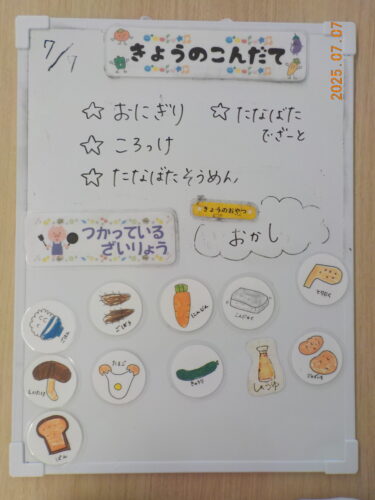 7/7
きょうのこんだて
2025.07.07
☆ おにぎり
☆ ころっけ
☆ たなばたそうめん
☆ たなばた
でざーと
つかっている
ざいりょう
きょうのおやつ
おかし
ごはん
ごぼう
にんじん
こんにゃく
とりにく
しいたけ
たまご
きゅうり
しょうゆ
じゃがいも
ぱん